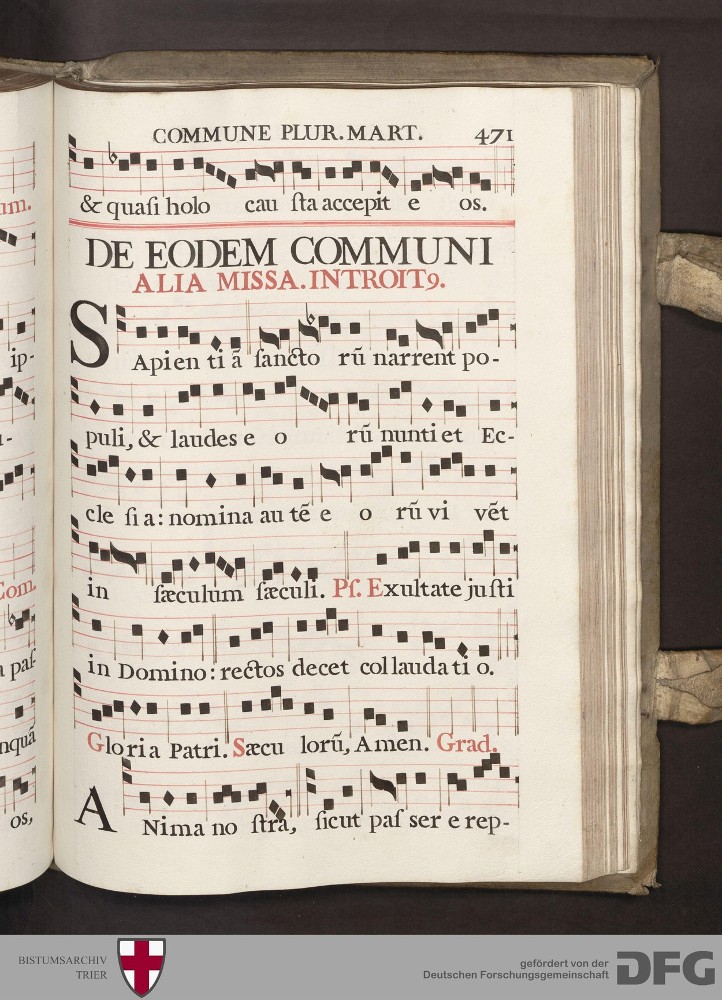 COMMUNE PLUR. MART. 471
& quaſi holo cau ſta accepit e os.
DE EODEM COMMUNI
ALIA MISSA. INTROIT9.
SApien ti ã ſancto rũ narrent po-
puli, & laudes e o rũ nunti et Ec-
cle ſi a: nomina au tẽ e o rũ vi vẽt
in ſæculum ſæculi. Pſ. Exultate juſti
in Domino: rectos decet collauda ti o.
Gloria Patri. Sæcu lorũ, Amen. Grad.
ANima no ſtra, ſicut paſ ser e rep-
um.
ip-
Com.
a paſ-
nquã
os,
BISTUMSARCHIV
TRIER
gefördert von der
Deutschen Forschungsgemeinschaft
DFG